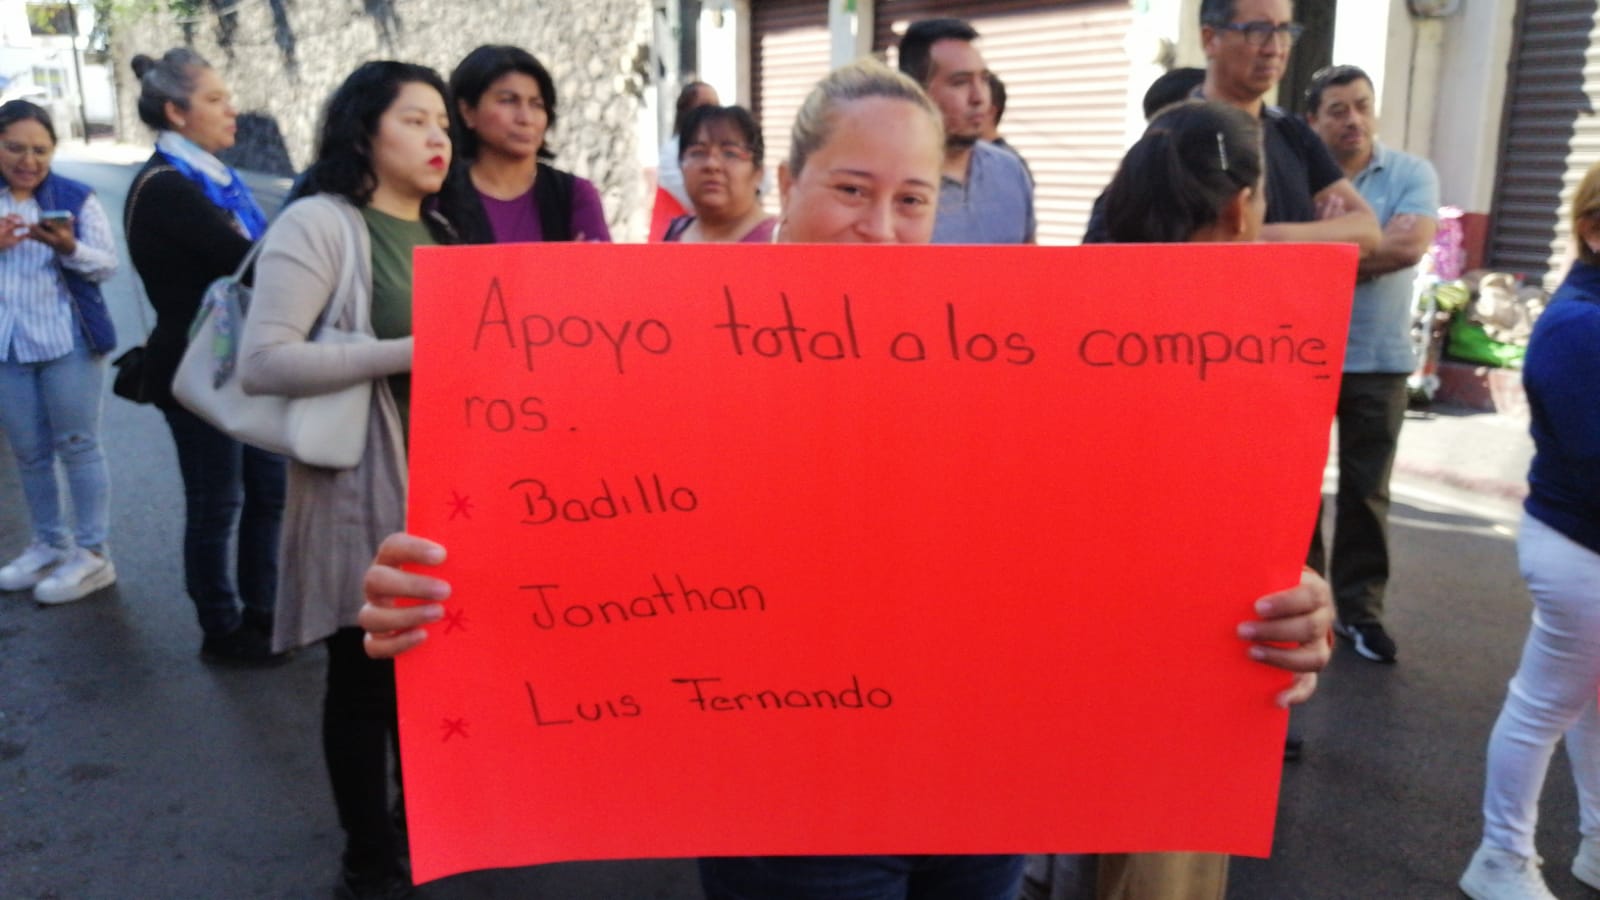 Apoyo total a los compañe
ros.
* Badillo
* Jonathan
* Luis Fernando